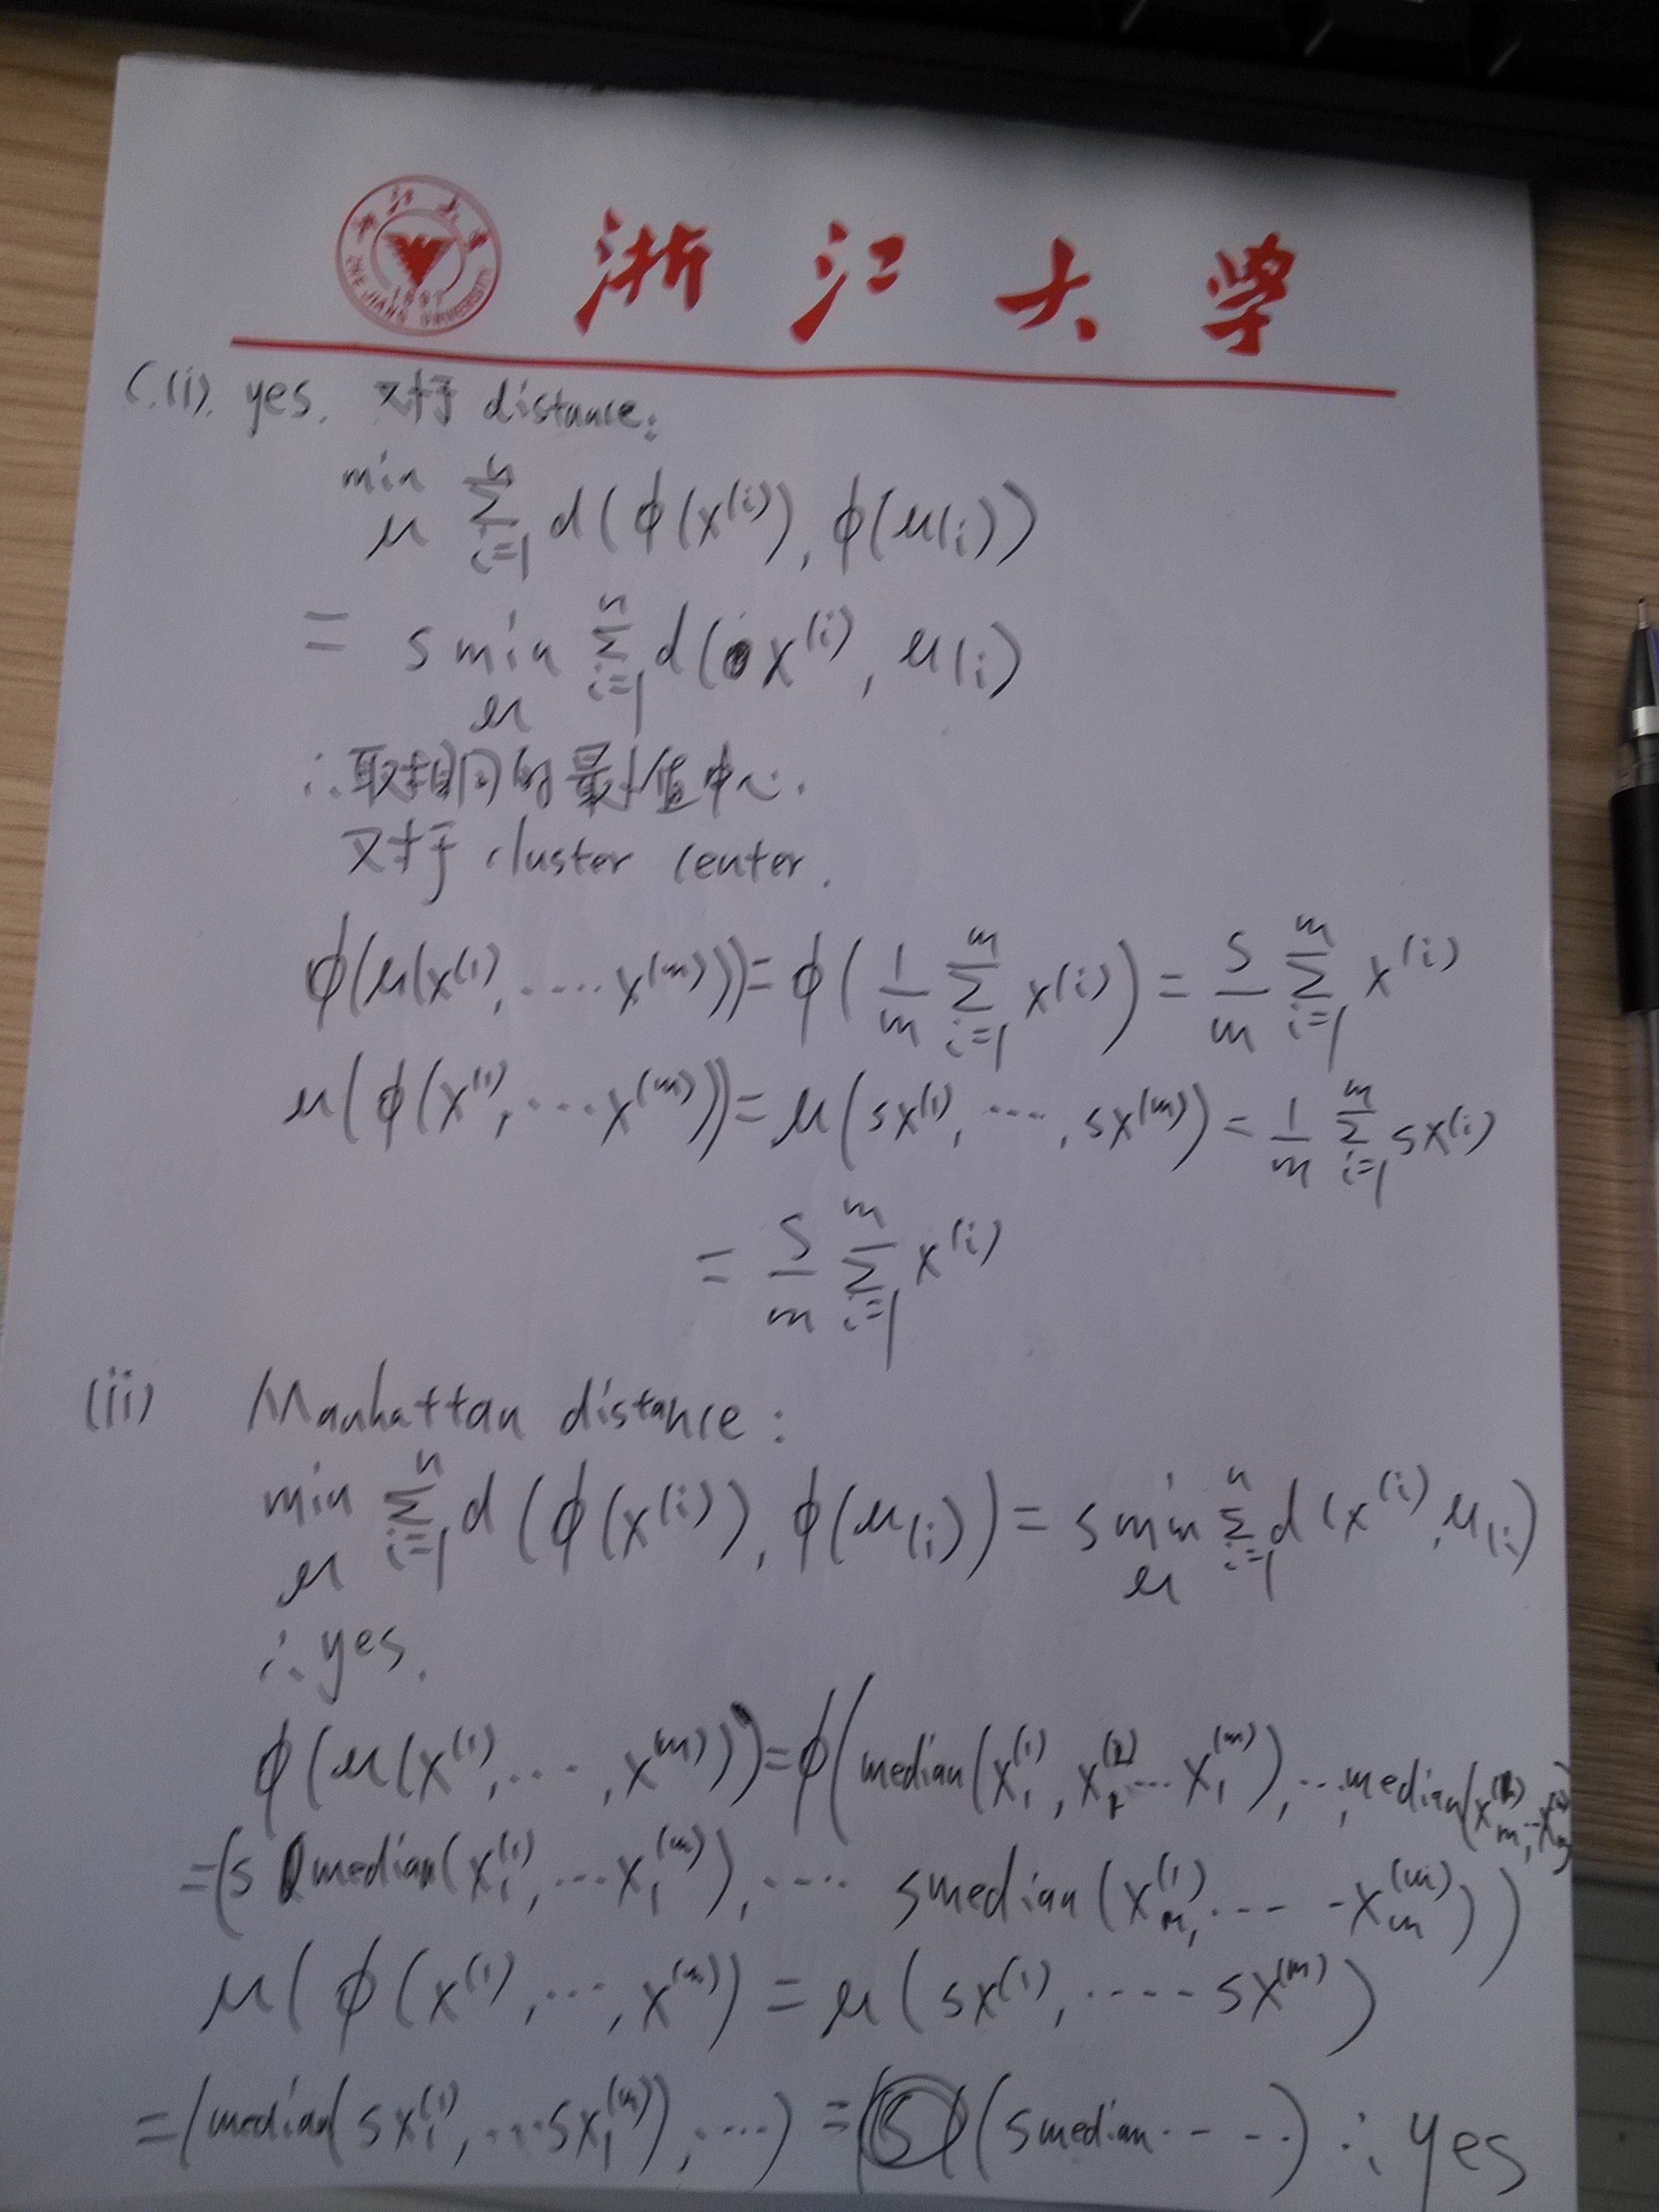 浙江大学
ZHE JIANG UNIVERSITY
1897
浙江大学
C.(i). yes. 对于 distance:
min_μ Σ_{i=1}^{n} d(ϕ(x^{(i)}), ϕ(μ_{(i)}))
= s min_μ Σ_{i=1}^{n} d(x^{(i)}, μ_{(i)})
∴取相同的最小值中心.
对于 cluster center.
ϕ(μ(x^{(1)}, .... x^{(m)})) = ϕ(1/m Σ_{i=1}^{m} x^{(i)}) = s/m Σ_{i=1}^{m} x^{(i)}
μ(ϕ(x^{(1)}, ... x^{(m)})) = μ(sx^{(1)}, ..., sx^{(m)}) = 1/m Σ_{i=1}^{m} sx^{(i)}
= s/m Σ_{i=1}^{m} x^{(i)}
(ii) Manhattan distance:
min_μ Σ_{i=1}^{n} d(ϕ(x^{(i)}), ϕ(μ_{(i)})) = s min_μ Σ_{i=1}^{n} d(x^{(i)}, μ_{(i)})
∴ yes.
ϕ(μ(x^{(1)}, ..., x^{(m)})) = ϕ(median(x_1^{(1)}, x_1^{(2)} ... x_1^{(m)}), ..., median(
=(s median(x_1^{(1)}, ... x_1^{(m)}), .... s median(x_m^{(1)}, ... - x_m^{(m)}))
μ(ϕ(x^{(1)}, ..., x^{(m)}) = μ(sx^{(1)}, .... sx^{(m)})
=(median(sx_1^{(1)}, ... sx_1^{(m)}), ...) = (s median ....) ∴ yes